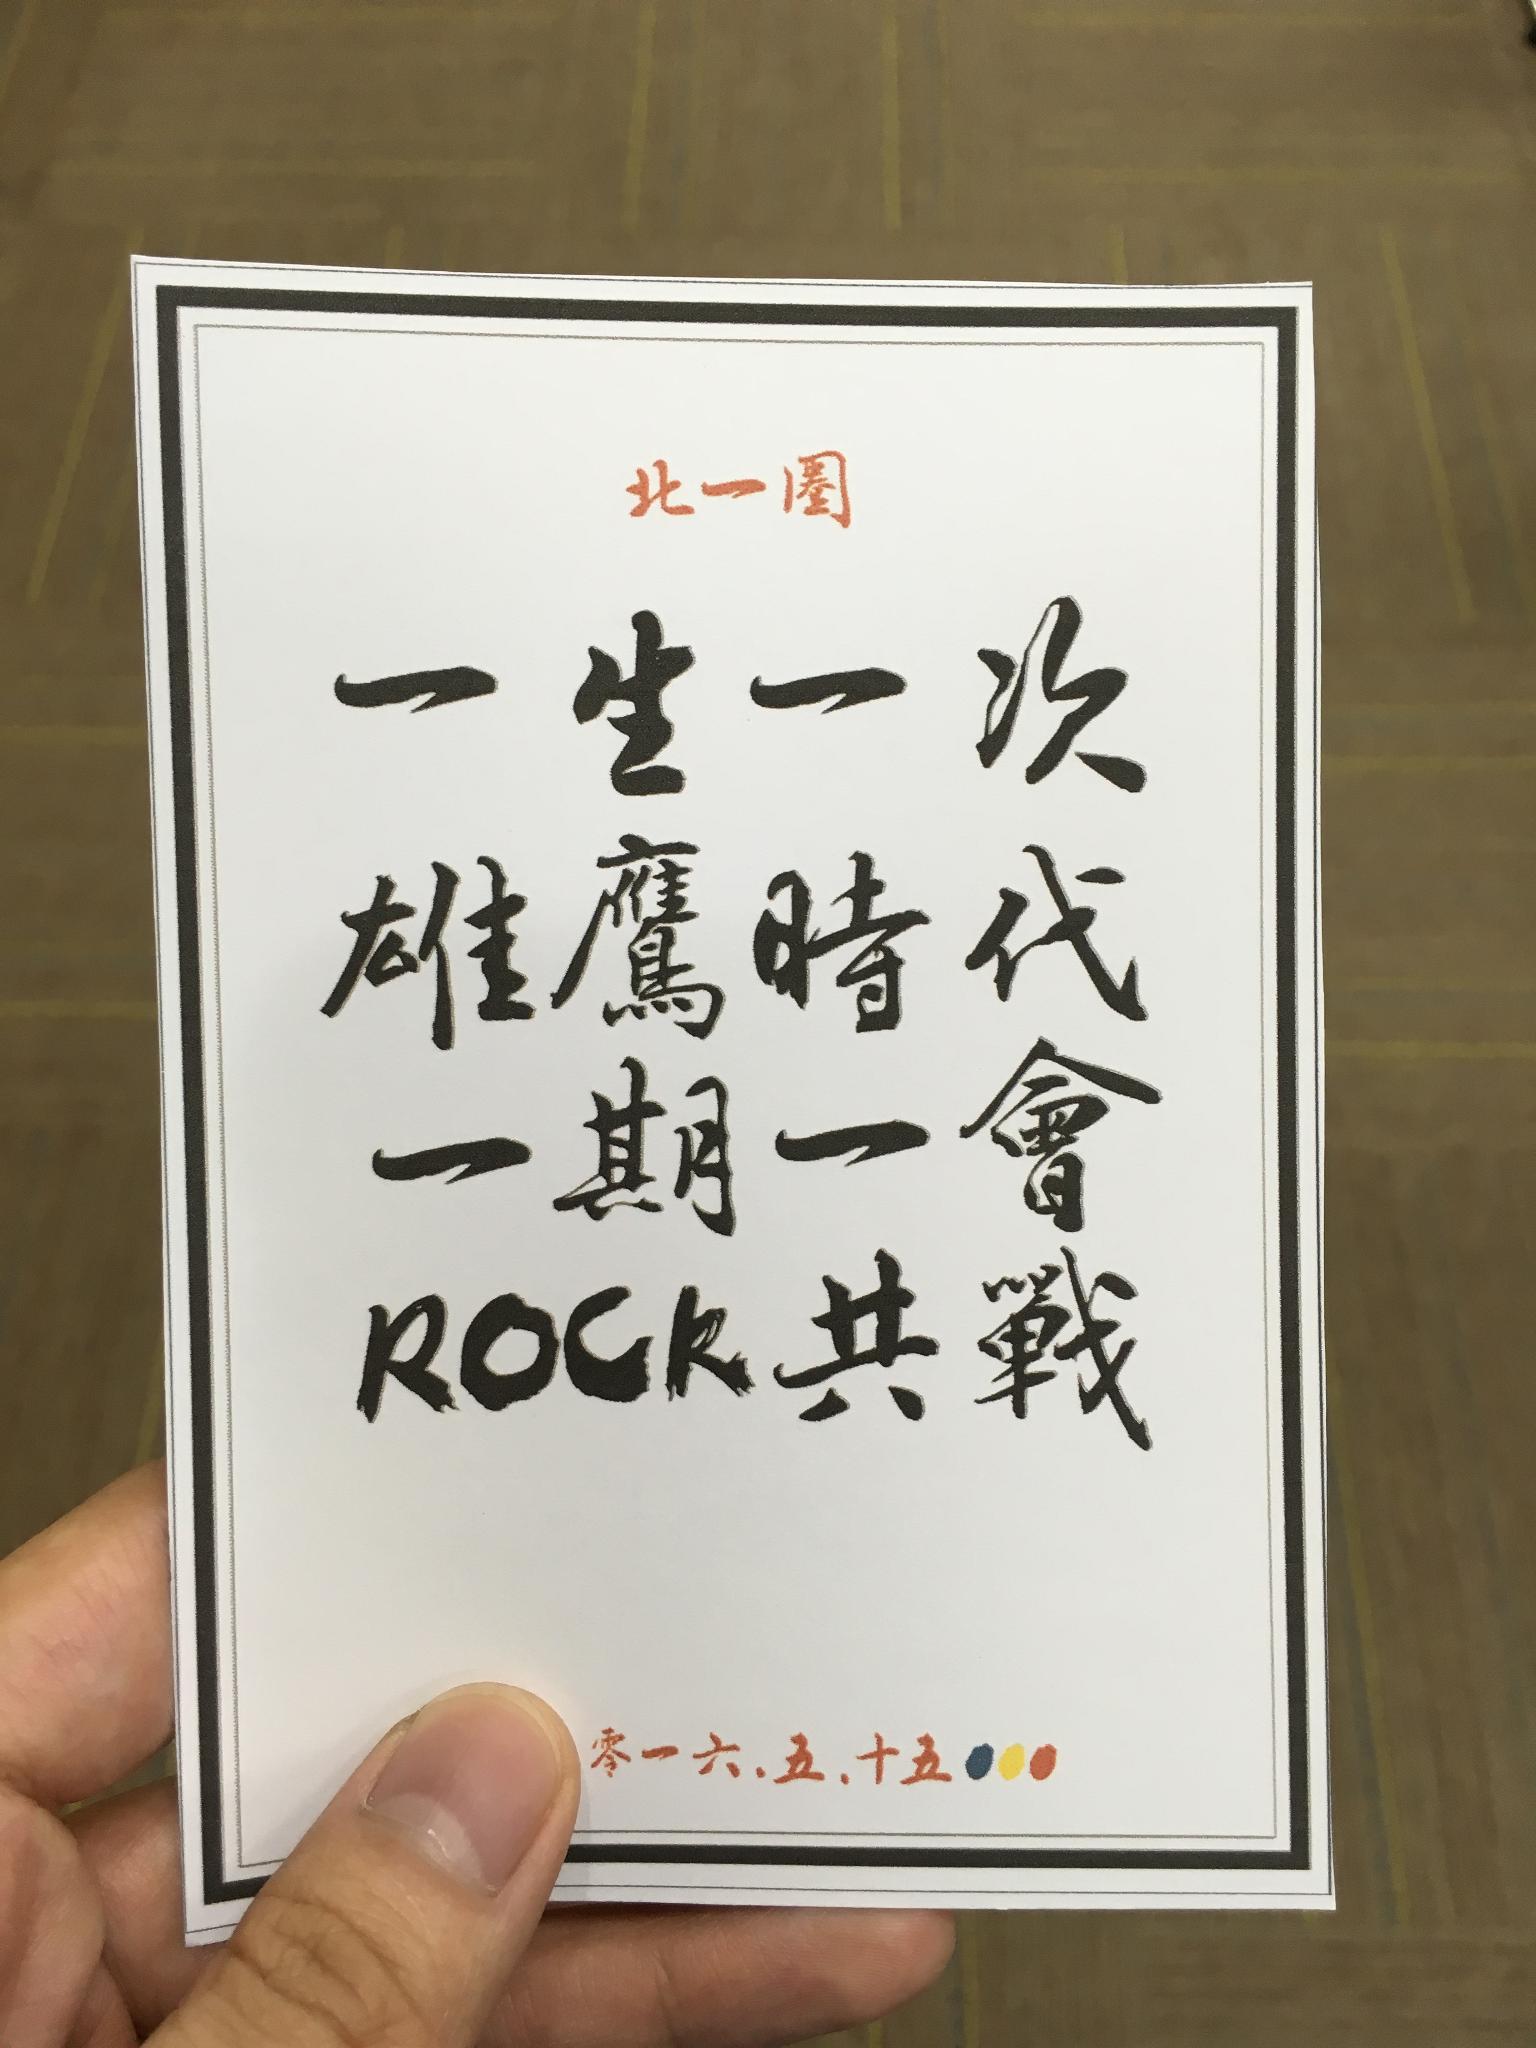 北一圈
一生一次
雄鷹時代
一期一會
ROCK共戰
零一六、五、十五